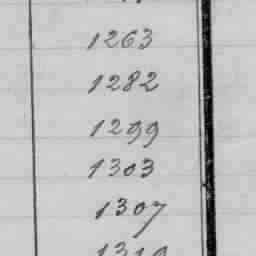 1263
1282
1299
1303
1307